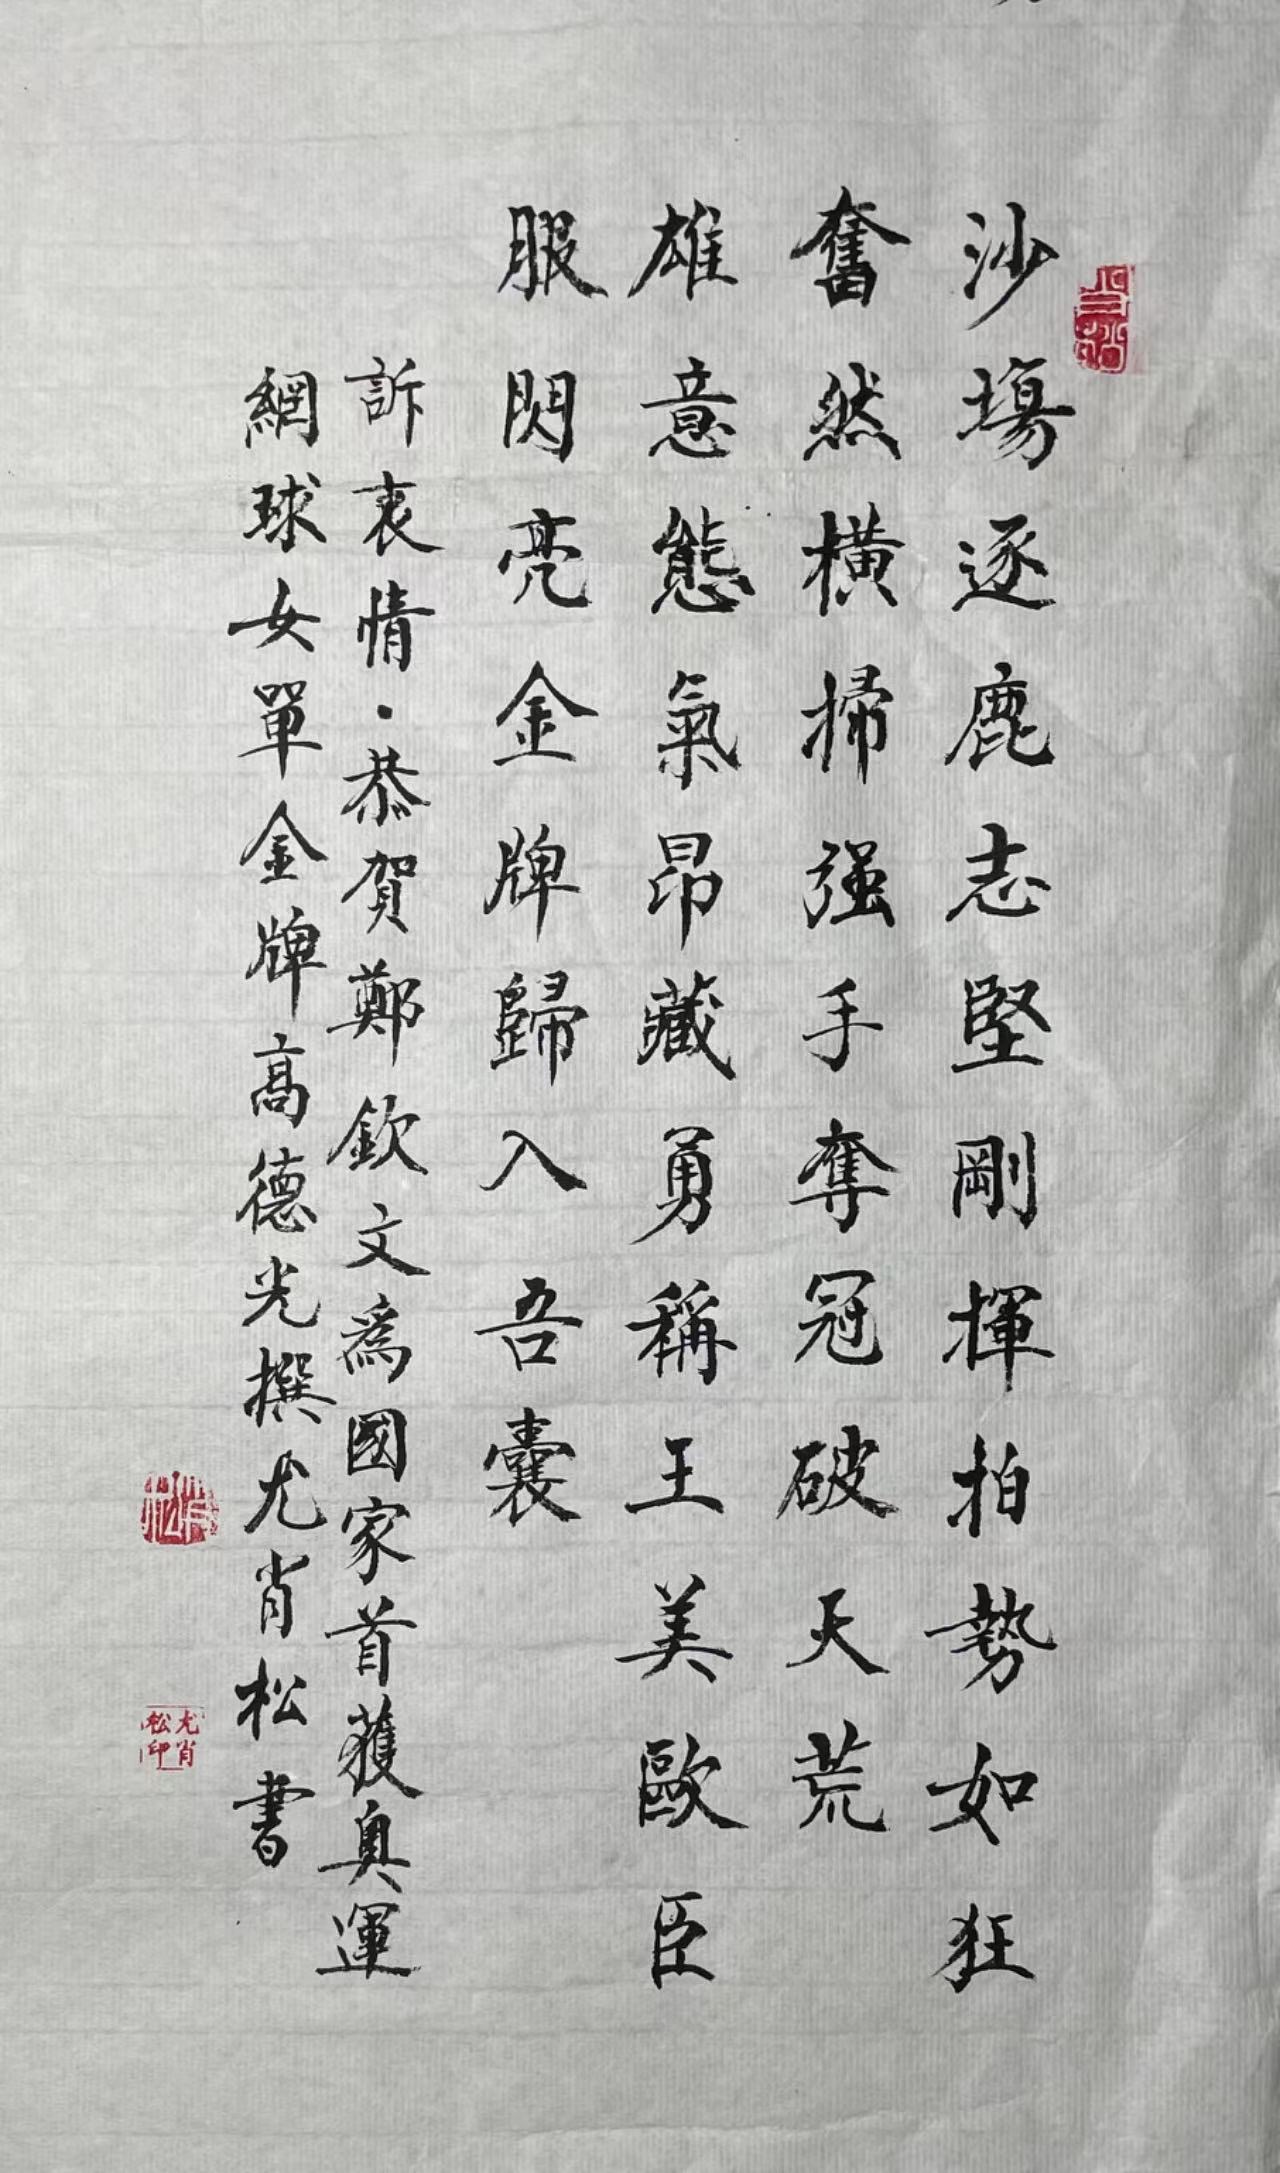 沙場逐鹿志堅剛揮拍勢如狂
奮然橫掃强手奪冠破天荒
雄意態氣昂藏勇稱王美歐臣
服閃亮金牌歸入吾囊
訴衷情·恭賀鄭欽文爲國家首獲奥運
網球女單金牌高德光撰尤肖松書
尤肖
松印